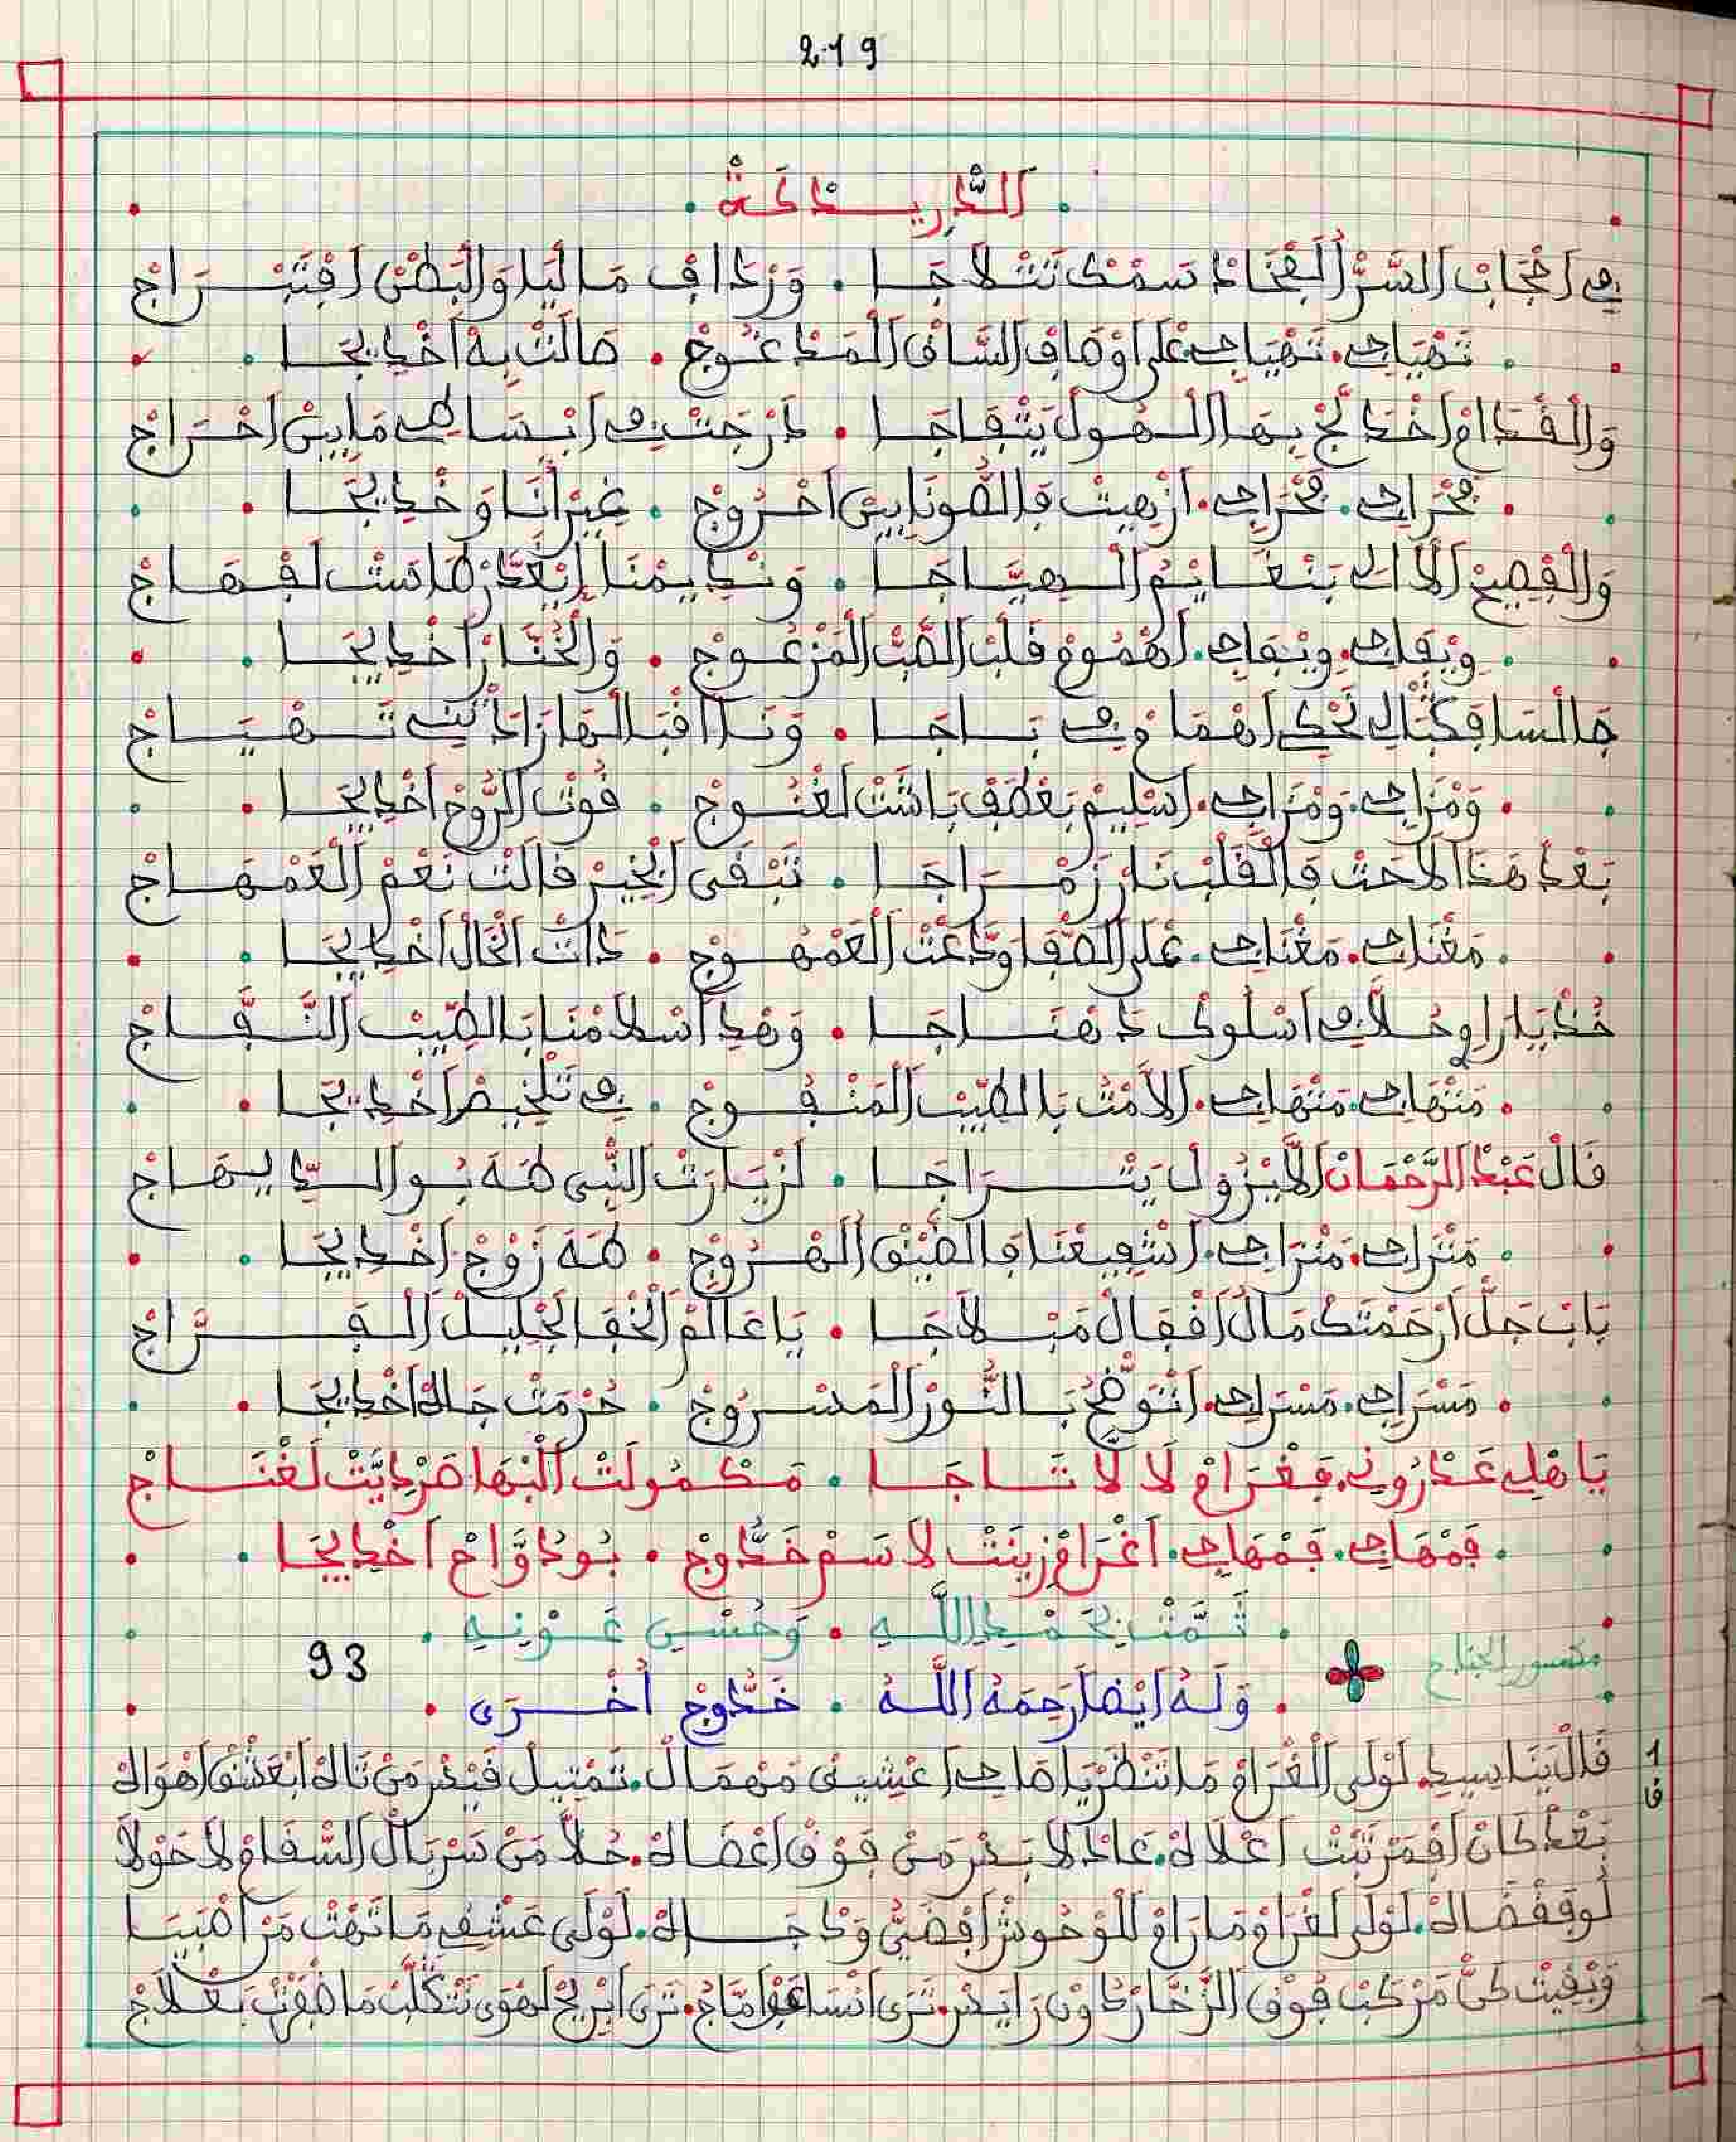 219
الدريدكة
في احجاب السر الفخاد سمك تتلاجا . وردافى ما ليلو البطن افتبراج
تهياجي . تهياجي على اوصاف الساق المدعوج . صالت به اخديجا
والقدام اخدلج بها الهول يتفاجا . درجت في ابساطي مابين احراج
مخراجي . مخراجي . ازهيت فالصونا بين اخروج . غير انا وخديجا
والفصيح الالي بنغايم الهياجا . ونديمنا ينعد طاست لفهاج
ويفاجي . ويفاجي . اهموم قلب الصب المزعوج . والخنار اخديجا
جالسا فكتالي تحكي اهما في باجا . ونا اقبالها زاد ني تهياج
ومزاجي . ومزاجي . اسليم بعطف باشت لغنوج . قوت الروح اخديجا
بعد هذا لاحت فالقلب نار زمراجا . تبقى الخير قالت نعم العمهاج
مغناجي . مغناجي . على الصفا ودعت العمهوج . دات الخال اخديجا
خد ياراوي حلا في اسلوك دهناجا . وهدا اسلامنا بالطيب النفاج
منتهاجي . منتهاجي . الامت بالطيب المنفوج . في تلخيص اخديجا
قال عبد الرحمان لا يزول يتراجا . لزيارت النبي طه بو الديهاج
منتراجي . منتراجي . اشفيعنا فالضيق الهروج . طه زوج اخديجا
باب جل ارحمتك مال اقفال مبلاجا . يا عالم الخفا الجليل الفراج
مسراجي . مسراجي . انتوضح بالنور المسروج . حرمت جاه اخديجا
يا هلي عدروني . فغرام لا لا تاجا . مكمولت البها ضرديت لغناج
قمهاجي . قمهاجي . اغرام زينت لاسم خدوج . بودواح اخديجا
تمت بحمد الله . وحسن عونه
مكسور الجناح
93
وله ايضا رحمه الله . خدوج أخرى
1
ف
قال بنا سيدي . لولى الغرام ما تنظر يا صاحي اعشيق مهمال . تمتيل قيس من تاه ابعشق اهواه
بعد كان افمرتبت اعلاه . عاد لابس من فوق اعضاه . حلا من سربال السقام لا حولا
لوقفضاه . لولى لغرام ما رام للوحوش افضي ودجاه . لولى عشق ما تهت من اصبيا
وبقيت كن مركب فوق الزخار دون رايس . ترى انساعف امواج . ترى ابريح لهوى نتكلب ما صفت بعلاج